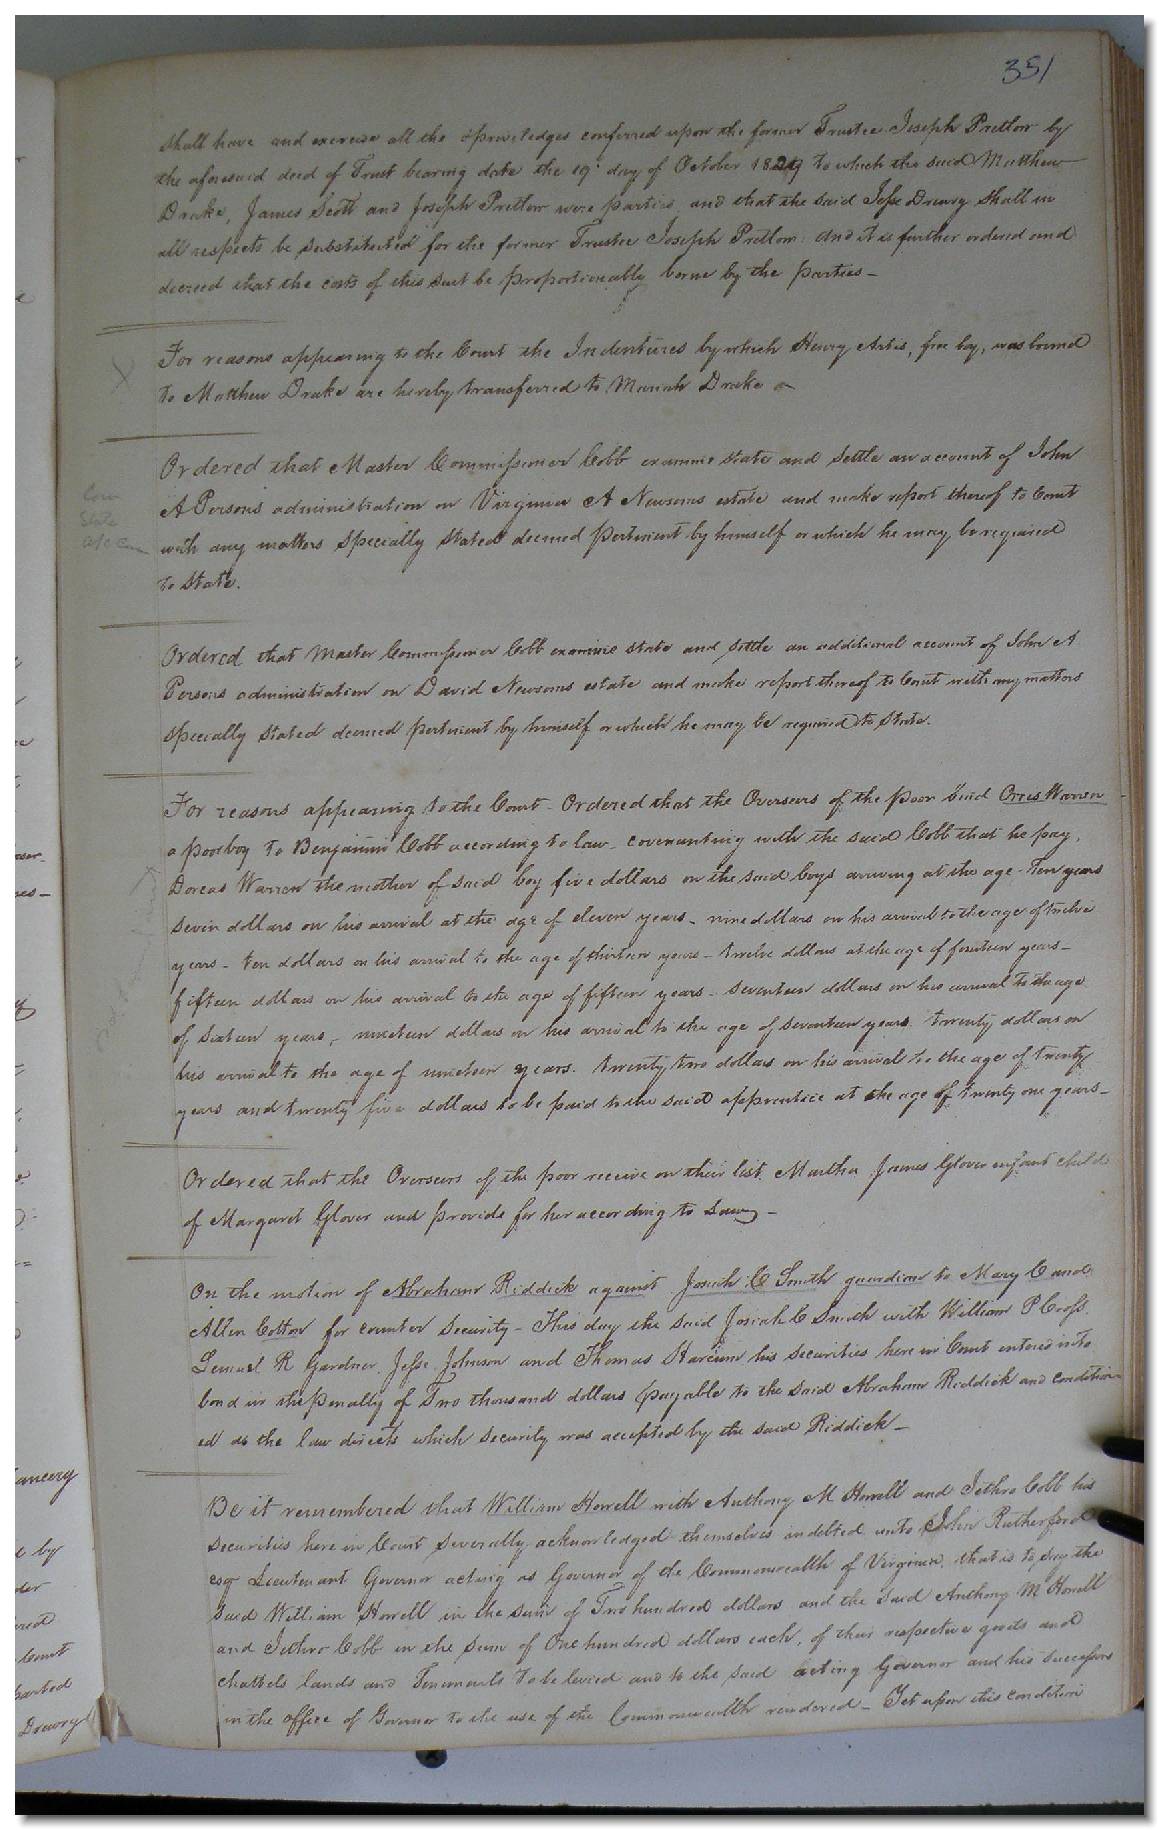 351
shall have and exercise all the priviledges conferred upon the former Trustee Joseph Pretlow by
the aforesaid deed of Trust bearing date the 19th day of October 1829 to which the said Matthew
Drake, James Scott and Joseph Pretlow were parties, and that the said Jesse Drewry shall in
all respects be substituted for the former Trustee Joseph Pretlow: and it is further ordered and
decreed that the costs of this suit be proportionably borne by the parties -
For reasons appearing to the Court the Indentures by which Henry Artis, free boy, was bound
to Matthew Drake are hereby transferred to Mariah Drake
Ordered that Master Commissioner Cobb examine state and settle an account of John
A Persons administration on Virginia A Newsoms estate and make report thereof to Court
with any matters specially stated deemed pertinent by himself or which he may be required
to state.
Ordered that Master Commissioner Cobb examine state and settle an additional account of John A
Persons administration on David Newsoms estate and make report thereof to Court with any matters
specially stated deemed pertinent by himself or which he may be required to state.
For reasons appearing to the Court - Ordered that the Overseers of the poor bind Orris Warren
a poor boy to Benjamin Cobb according to law - covenanting with the said Cobb that he pay
Dorcas Warren the mother of said boy five dollars on the said boys arriving at the age ten years
seven dollars on his arrival at the age of eleven years - nine dollars on his arrival to the age of twelve
years - ten dollars on his arrival to the age of thirteen years - twelve dollars at the age of fourteen years -
fifteen dollars on his arrival to the age of fifteen years - seventeen dollars on his arrival to the age
of sixteen years, - nineteen dollars on his arrival to the age of seventeen years. twenty dollars on
his arrival to the age of nineteen years. twenty two dollars on his arrival to the age of twenty
years and twenty five dollars to be paid to the said apprentice at the age of twenty one years -
Ordered that the Overseers of the poor receive on their list Martha James Glover infant child
of Margaret Glover and provide for her according to Law -
On the motion of Abraham Riddick against Josiah C Smith guardian to Mary C and
Allen Cotton for counter security - This day the said Josiah C Smith with William P Cross,
Lemuel R Gardner, Jesse Johnson and Thomas Harcum his securities here in Court entered into
bond in the penalty of Two thousand dollars payable to the said Abraham Riddick and condition
ed as the law directs which security was accepted by the said Riddick -
Be it remembered that William Howell with Anthony M Howell and Jethro Cobb his
securities here in Court severally acknowledged themselves indebted unto John Rutherford
esq Lieutenant Governor acting as Governor of the Commonwealth of Virginia, that is to say the
said William Howell in the sum of Two hundred dollars and the said Anthony M Howell
and Jethro Cobb in the sum of One hundred dollars each, of their respective goods and
chattels lands and Tenements to be levied and to the said acting Governor and his successors
in the office of Governor to the use of the Commonwealth rendered - Yet upon this condition